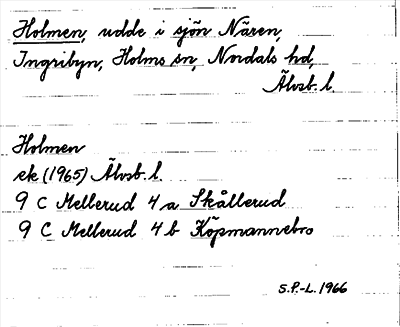 Holmen, udde i sjön Nären,
Ingribyn, Holms sn, Nordals hd,
Älvsb. l.
Holmen
ek (1965) Älvsb. l.
9 C Mellerud 4 a Skållerud
9 C Mellerud 4 b Köpmannebro
S.P.-L. 1966